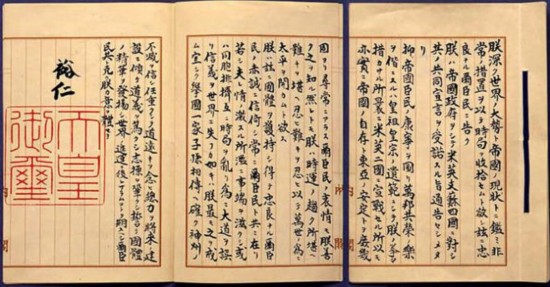 朕深ク世界ノ大勢ト帝國ノ現狀トニ鑑ミ非
常ノ措置ヲ以テ時局ヲ收拾セムト欲シ茲ニ忠
良ナル爾臣民ニ告ク
朕ハ帝國政府ヲシテ米英支蘇四國ニ對シ
其ノ共同宣言ヲ受諾スル旨通告セシメタ
リ
抑帝國臣民ノ康寧ヲ圖リ萬邦共榮ノ樂
ヲ偕ニスルハ皇祖皇宗ノ遺範ニシテ朕ノ拳々
措カサル所曩ニ米英二國ニ宣戰セル所以モ
亦實ニ帝國ノ自存ト東亞ノ安定トヲ庶幾
内閣
固ヨリ尋常ニアラス爾臣民ノ衷情モ朕善
ク之ヲ知ル然レトモ朕ハ時運ノ趨ク所堪ヘ
難キヲ堪ヘ忍ヒ難キヲ忍ヒ以テ萬世ノ爲ニ
太平ヲ開カムト欲ス
朕ハ茲ニ國體ヲ護持シ得テ忠良ナル爾臣
民ノ赤誠ニ信倚シ常ニ爾臣民ト共ニ在リ
若シ夫レ情ノ激スル所濫ニ事端ヲ滋クシ或
ハ同胞排擠互ニ時局ヲ亂リ爲ニ大道ヲ誤
リ信義ヲ世界ニ失フカ如キハ朕最モ之ヲ戒
ム宜シク擧國一家子孫相傳ヘ確ク神州ノ
不滅ヲ信シ任重クシテ道遠キヲ念ヒ總力ヲ將來ノ建
設ニ傾ケ道義ヲ篤クシ志操ヲ鞏クシ誓テ國體
ノ精華ヲ發揚シ世界ノ進運ニ後レサラムコトヲ期スヘシ爾臣
民其レ克ク朕カ意ヲ體セヨ
裕仁
天皇
御璽